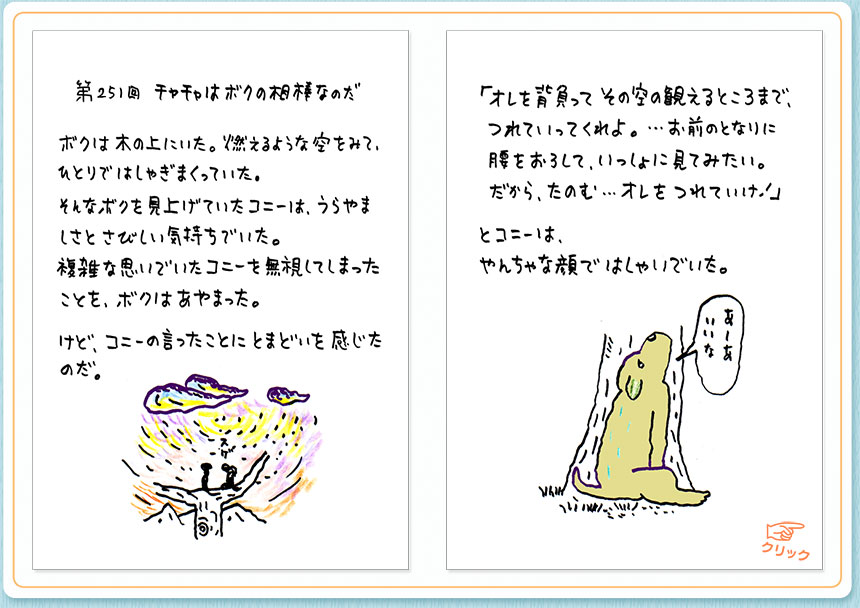 第251回 チャチャはボクの相棒なのだ
ボクは木の上にいた。燃えるような空をみて、
ひとりではしゃぎまくっていた。
そんなボクを見上げていたコニーは、うらやま
しさとさびしい気持ちでいた。
複雑な思いでいたコニーを無視してしまった
ことを、ボクはあやまった。
けど、コニーの言ったことにとまどいを感じた
のだ。
スゲ
「オレを背負ってその空の観えるところまで、
つれていってくれよ。…お前のとなりに
腰をおろして、いっしょに見てみたい。
だから、たのむ…オレをつれていけ!」
とコニーは、
やんちゃな顔ではしゃいでいた。
あーあ
いいな
クリック